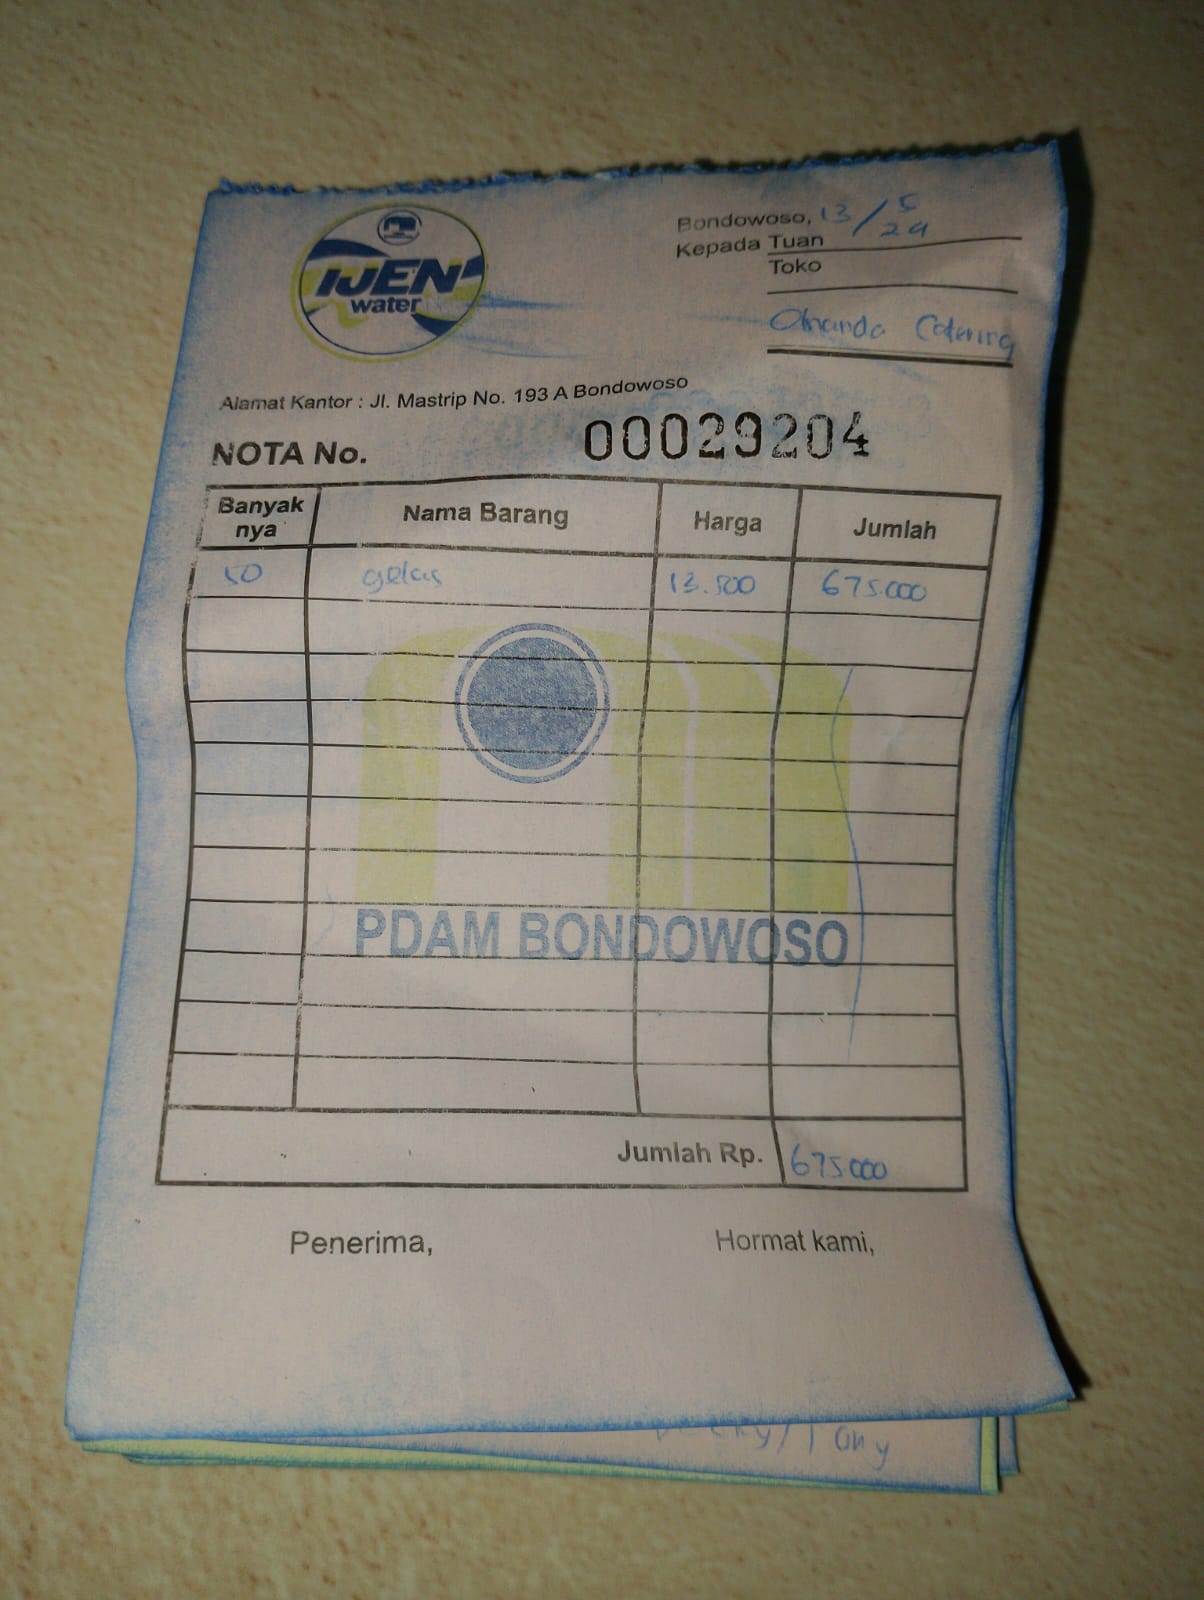 IJEN
water
Bondowoso, 13/5
24
Kepada Tuan
Toko
Catering
Alamat Kantor : Jl. Mastrip No. 193 A Bondowoso
NOTA No. 00029204
Banyak nya Nama Barang Harga Jumlah
50 gelas 13.500 675.000
PDAM BONDOWOSO
Jumlah Rp. 675.000
Penerima, Hormat kami,